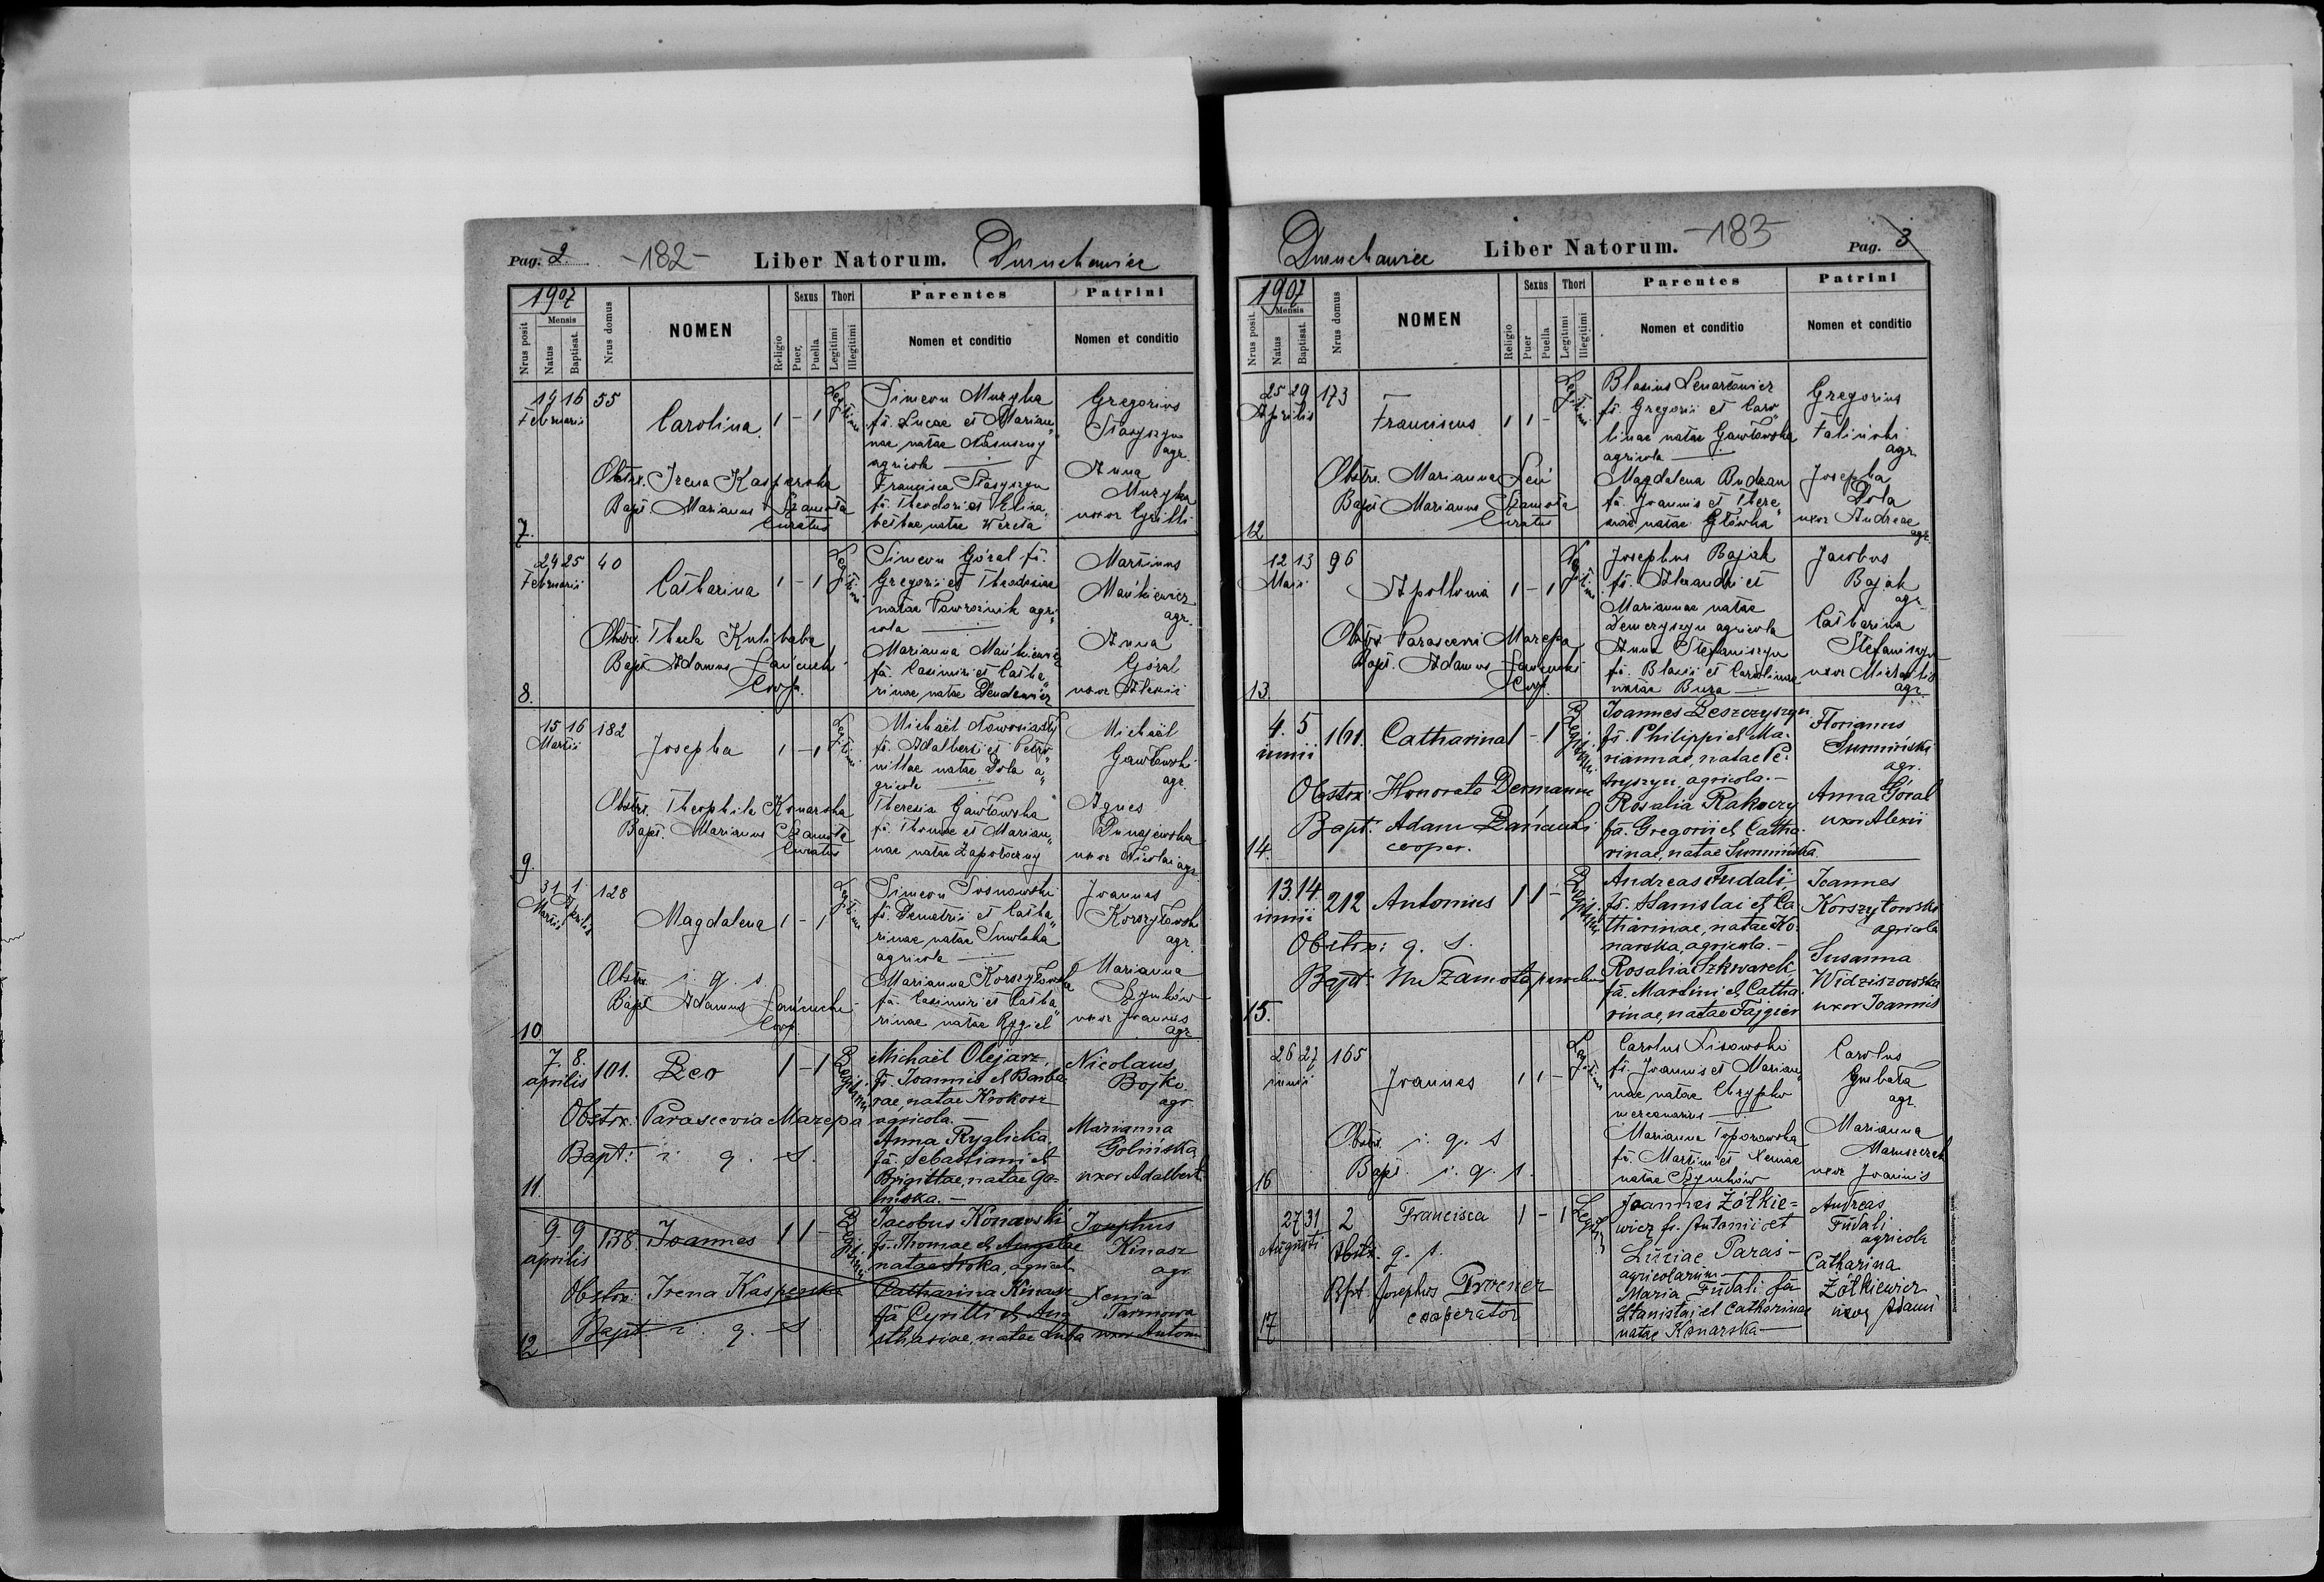 Pag. 2. -182- Liber Natorum.
1907
Nrus posit
Mensis
Natus
Baptisat.
Nrus domus
NOMEN
Religio
Sexus
Puer,
Puella
Thori
Legitimi
Illegitimi
Parentes
Nomen et conditio
Patrini
Nomen et conditio
7.
14 16
Februarii
55
Carolina 1 - 1
Legitimi
Obstr. Irena Kasperska
Bapt. Marianus Szamota
Curatus
Simeon Muzyka
fs. Lucae et Marian
nae natae
agricola
Francisca Stasyszyn
fa. Theodori et Elisa
bethae natae Wereta
Gregorius
Stasyszyn
agr.
Anna
Muzyka
uxor Cyrilli
8.
24 25
Februarii
40
Catharina 1 - 1
Legitimi
Obstr. Thecla Kulibaba
Bapt. Adamus Łańcucki
Coop.
Simeon Góral fs.
Gregorii et Theodosiae
natae Pawroźnik agri
cola
Marianna Mańkiewicz
fa. Casimiri et Catha
rinae natae Dendewicz
Martinus
Mańkiewicz
agr.
Anna
Góral
uxor Alexii
9.
15 16
Martii
182
Josepha 1 - 1
Legitimi
Obstr. Theophila Konarska
Bapt. Marianus Szamota
Curatus
Michaël Nowosiadły
fs. Adalberti et Petro
nillae natae Dola a
gricola
Theresia Gawłowska
fa. Thomae et Marian
nae natae Zapotoczny
Michaël
Gawłowski
agr.
Agnes
Dunajewska
uxor Nicolai agr.
10
31 1
Martii Aprilis
128
Magdalena 1 - 1
Legitimi
Obstr. i. q. s.
Bapt. Adamus Łańcucki
Coop.
Simeon Sosnowski
fs. Demetrii et Catha
rinae natae
agricola
Marianna Korszyłowska
fa. Casimiri et Catha
rinae natae Rygiel
Joannes
Korszyłowski
agr.
Marianna
Szymków
uxor Joannis
agr.
11
7. 8.
aprilis
101.
Leo 1 - 1
Legitimi
Obstrx: Parascevia Mazepa
Bapt: i. q. s.
Michaël Olejarz,
fs. Joannis et Barba-
rae, natae Krokosz
agricola. -
Anna Ryglicka,
fa. Sebastiani et
Brigittae, natae Go-
lińska. -
Nicolaus
Bojko
agr.
Marianna
Golińska
uxor Adalberti
12
9. 9
aprilis
138.
Joannes 1 1 -
Legitimi
Obstrx: Irena Kasperska
Bapt. i. q. s.
Jacobus Konarski
fs. Thomae et Angelae
natae Sroka, agricol.
Catharina Kinasz
fa Cyrilli et Ana
sthasiae, natae Luba
Josephus
Kinasz
agr.
Xenia
Tarnowa
uxor Antoni
Liber Natorum. -183- Pag. 3
1907
Nrus posit.
Mensis
Natus
Baptisat.
Nrus domus
NOMEN
Religio
Sexus
Puer
Puella
Thori
Legitimi
Illegitimi
Parentes
Nomen et conditio
Patrini
Nomen et conditio
12
25 29
Aprilis
173
Franciscus 1 1 -
Legitimi
Obstr. Marianna Leń
Bapt. Marianus Szamota
Curatus
Blasius Lenartowicz
fs. Gregorii et Caro
linae natae Gawłowska
agricola
Magdalena Budzan
fa. Joannis et There
siae natae Główka
Gregorius
Faliński
agr.
Josepha
Dola
uxor Andreae
agr.
13
12 13
Maii
96
Apollonia 1 - 1
Legitimi
Obstr. Parascevi Mazepa
Bapt. Adamus Łańcucki
Coop.
Josephus Bajak
fs. Alexandri et
Mariannae natae
Demeryszyn agricola
Anna Stefaniszyn
fa. Blasii et Carolinae
natae Buza
Jacobus
Bajak
agr.
Catharina
Stefaniszyn
uxor Michaelis
agr.
14.
4. 5
iunii
161.
Catharina 1 - 1
Legitimi
Obstrx: Honorata Dermanna
Bapt: Adam Łańcucki
cooper.
Joannes Leszczyszyn
fs. Philippi et Ma-
riannae, natae Pe-
tryszyn, agricola. -
Rosalia Rakoczy
fa. Gregorii et Catha-
rinae, natae Surmińska.
Florianus
Surmiński
agr.
Anna Góral
uxor Alexii
15.
13. 14.
iunii
212
Antonius 1 1 -
Legitimi
Obstrx: q. s.
Bapt. M Szamota parochus
Andreas Fudali,
fs. Stanislai et Ca-
tharinae, natae Ko-
narska, agricola. -
Rosalia Szkwarek,
fa. Martini et Catha-
rinae, natae Fajgier
Joannes
Korszyłowski
agricola
Susanna
Widziszowska
uxor Joannis
16
26 27
iunii
165
Joannes 1 1 -
Legitimi
Obstr. i. q. s
Bapt. i. q. s.
Carolus Lisowski
fs. Joannis et Marian
nae natae Chrypko
mercenarius
Marianna Toporowska
fa. Martini et Xeniae
natae Szymków
Carolus
Gubała
agr.
Marianna
Maruszczak
uxor Joannis
17
27 31
Augusti
2
Francisca 1 - 1
Legitimi
Obstr. q. s.
Bpt. Josephus Procner
cooperator
Joannes Żółkie=
wicz fs. Antonii et
Luciae Paraś -
agricolarum
Maria Fudali fa
Stanislai et Catharinae
natae Konarska
Andreas
Fudali
agricola
Catharina
Żółkiewicz
uxor Adami